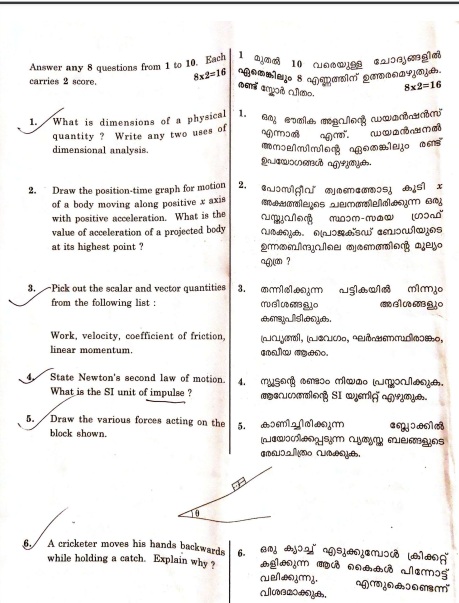 Answer any 8 questions from 1 to 10. Each
carries 2 score. 8x2=16
1. What is dimensions of a physical
quantity ? Write any two uses of
dimensional analysis.
2. Draw the position-time graph for motion
of a body moving along positive x axis
with positive acceleration. What is the
value of acceleration of a projected body
at its highest point ?
3. Pick out the scalar and vector quantities
from the following list :
Work, velocity, coefficient of friction,
linear momentum.
4. State Newton's second law of motion.
What is the SI unit of impulse ?
5. Draw the various forces acting on the
block shown.
θ
6. A cricketer moves his hands backwards
while holding a catch. Explain why ?
1 മുതൽ 10 വരെയുള്ള ചോദ്യങ്ങളിൽ
ഏതെങ്കിലും 8 എണ്ണത്തിന് ഉത്തരമെഴുതുക.
രണ്ട് സ്കോർ വീതം. 8x2=16
1. ഒരു ഭൗതിക അളവിന്റെ ഡയമൻഷൻസ്
എന്നാൽ എന്ത്. ഡയമൻഷനൽ
അനാലിസിസിന്റെ ഏതെങ്കിലും രണ്ട്
ഉപയോഗങ്ങൾ എഴുതുക.
2. പോസിറ്റീവ് ത്വരണത്തോടു കൂടി x
അക്ഷത്തിലൂടെ ചലനത്തിലിരിക്കുന്ന ഒരു
വസ്തുവിന്റെ സ്ഥാന-സമയ ഗ്രാഫ്
വരക്കുക. പ്രൊജക്ടഡ് ബോഡിയുടെ
ഉന്നതബിന്ദുവിലെ ത്വരണത്തിന്റെ മൂല്യം
എത്ര ?
3. തന്നിരിക്കുന്ന പട്ടികയിൽ നിന്നും
സദിശങ്ങളും അദിശങ്ങളും
കണ്ടുപിടിക്കുക.
പ്രവൃത്തി, പ്രവേഗം, ഘർഷണസ്ഥിരാങ്കം,
രേഖീയ ആക്കം.
4. ന്യൂട്ടന്റെ രണ്ടാം നിയമം പ്രസ്താവിക്കുക.
ആവേഗത്തിന്റെ SI യൂണിറ്റ് എഴുതുക.
5. കാണിച്ചിരിക്കുന്ന ബ്ലോക്കിൽ
പ്രയോഗിക്കപ്പടുന്ന വ്യത്യസ്ത ബലങ്ങളുടെ
രേഖാചിത്രം വരക്കുക.
6. ഒരു ക്യാച്ച് എടുക്കുമ്പോൾ ക്രിക്കറ്റ്
കളിക്കുന്ന ആൾ കൈകൾ പിന്നോട്ട്
വലിക്കുന്നു. എന്തുകൊണ്ടെന്ന്
വിശദമാക്കുക.